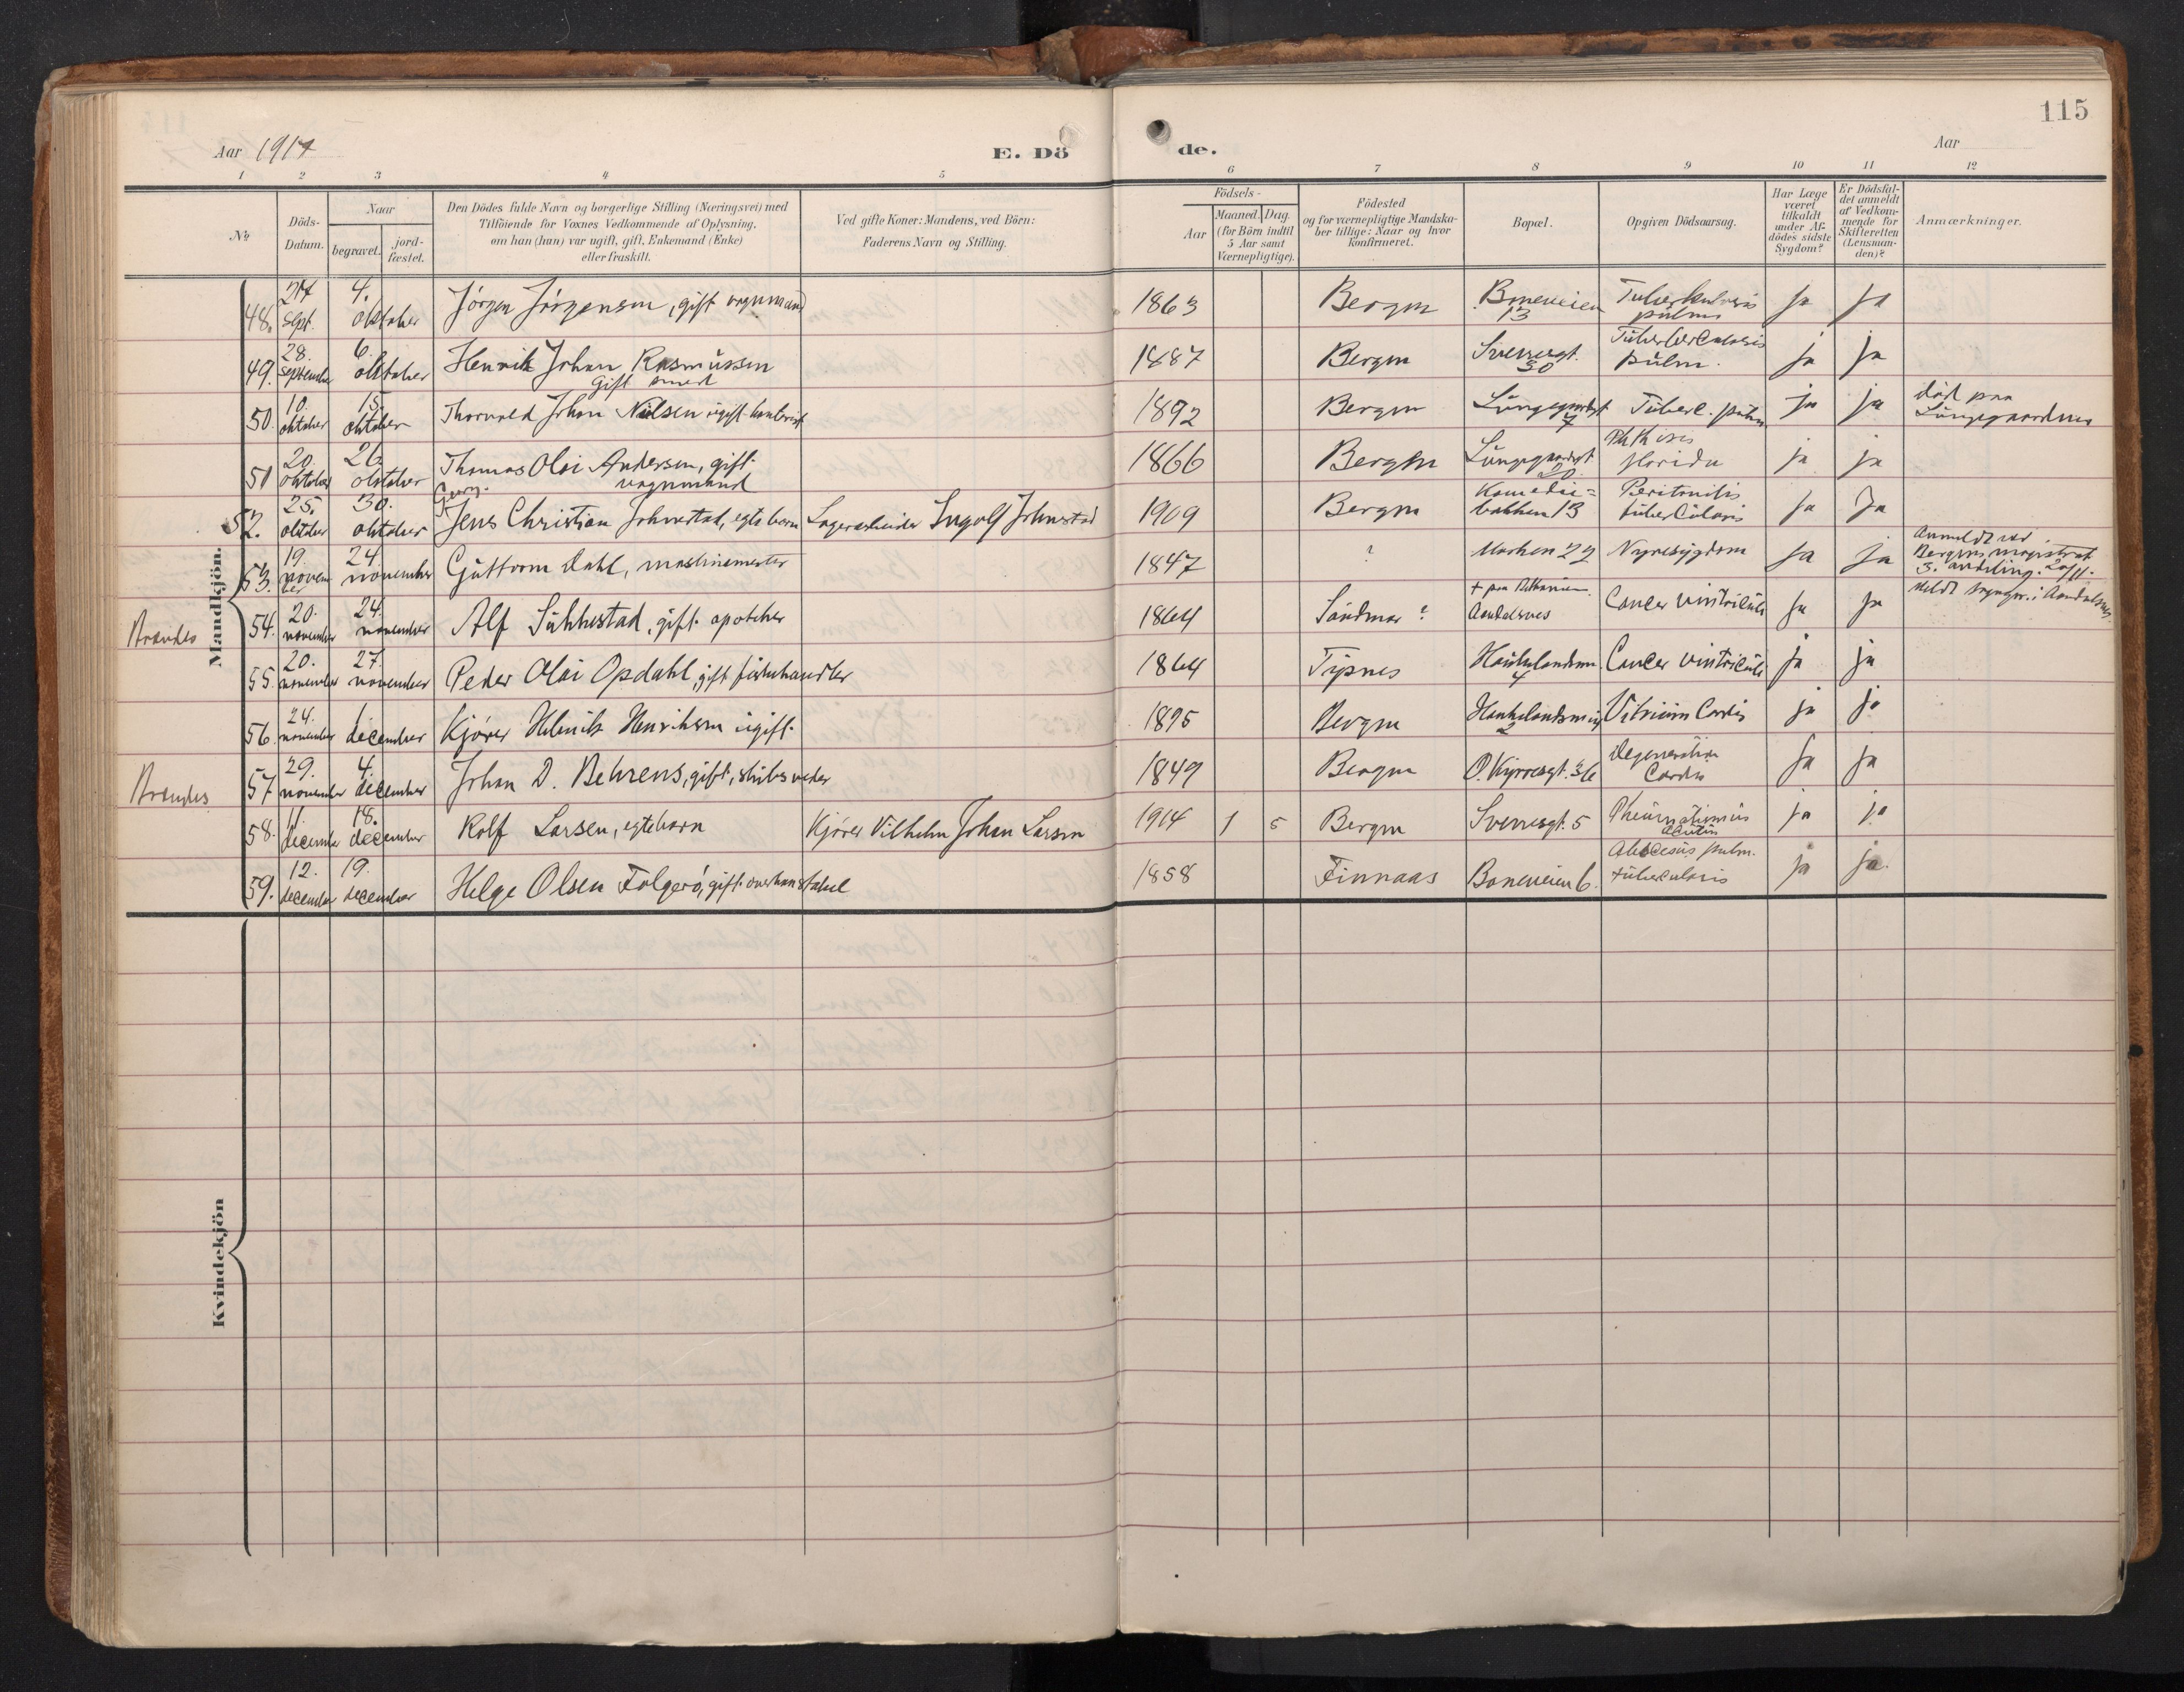 115
Aar 1914
E. Dö
de.
Aar
1 2 3 4 5 6 7 8 9 10 11 12
№
Döds-
Datum.
Naar
begravet.
jord-
fæstet.
Den Dödes fulde Navn og borgerlige Stilling (Næringsvei) med
Tilföiende for Voxnes Vedkommende af Oplysning,
om han (hun) var ugift, gift, Enkemand (Enke)
eller fraskilt.
Ved gifte Koner: Mandens, ved Börn:
Faderens Navn og Stilling.
Födsels-
Aar
Maaned. Dag.
(for Börn indtil
5 Aar samt
Værnepligtige).
Födested
og for værnepligtige Mandska-
ber tillige: Naar og hvor
konfirmeret.
Bopæl.
Opgiven Dödsaarsag.
Har Læge
været
tilkaldt
under Af-
dödes sidste
Sygdom?
Er Dödsfal-
det anmeldt
af Vedkom-
mende for
Skifteretten
(Lensman-
den)?
Anmærkninger.
Mandkjön.
48. sept. 4. oktober Jörgen Jörgensen, gift vognmand 1863 Bergen 13 Tuberkulosis pulm ja ja
49. 28. september 6. oktober Henrik Johan Rasmussen
gift smed 1887 Bergen Sverresgt. 30 pulm. ja ja
50. 10. oktober 15. oktober Thorvald Johan Nielsen ugift kontorist 1892 Bergen 7 Tuberc. pulm ja ja död paa Lungegaarden
51 20. oktober 26. oktober Thomas Olai Andersen, gift
vognmand 1866 Bergen 20. Phthisis florida ja ja
52. 25. oktober 30. oktober Jens Christian Johnstad, egte barn Lagerarbeider Ingolf Johnstad 1909 Bergen Komedie=
bakken 13 Peritonitis
tuberculosis ja ja
53. 19. november 24. november Guttorm Dahl, maskinmester 1847 ? Marken 22 Nyresygdom ja ja Anmeldt ved
Bergens magistrat
3. avdeling. 20/11.
Brændes
54. 20. november 24. november Alf gift apotheker 1864 Söndmör ? Aandalsnes Cancer ventriculi ja ja
55. 20. november 27. november Peder Olai Opdahl, gift fiskehandler 1864 4 Cancer ventriculi ja ja
56. 24. november 1. december Kjörer Henriksen ugift 1895 Bergen 2 Vitium Cordis ja ja
Brændes
57 29. november 4. december Johan D. Behrens, gift, 1849 Bergen O. Kyrresgt. 36 Degeneratio
Cordis ja ja
58. 11. december 18. december Rolf Larsen, egtebarn Kjörer Vilhelm Johan Larsen 1914 1 5 Bergen Sverresgt. 5 ja ja
59. 12. december 19. december Helge Olsen Folgerö, gift overkonstabel 1858 Finnaas Baneveien 6. pulm.
tuberculosis ja ja.
Kvindekjön